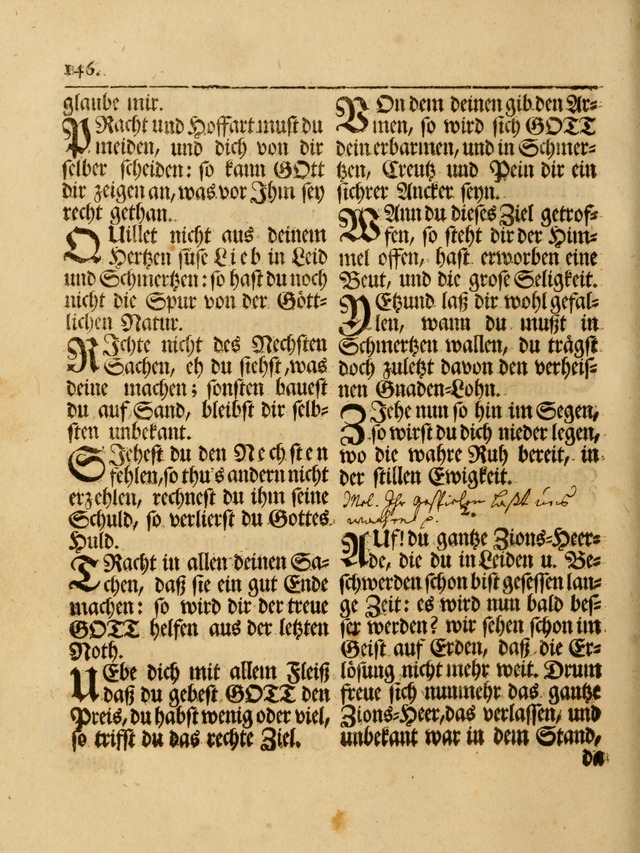 146.
glaube mir.
PRacht und Hoffart must du
meiden, und dich von dir
selber scheiden: so kann GOtt
dir zeigen an, was vor Ihm sey
recht gethan.
QUillet nicht aus deinem
Hertzen süse Lieb in Leid
und Schmertzen: so hast du noch
nicht die Spur von der Gött-
lichen Natur.
RIchte nicht des Nechsten
Sachen, eh du siehst, was
deine machen; sonsten bauest
du auf Sand, bleibst dir selb-
sten unbekant.
SIehest du den Nechsten
fehlen, so thu's andern nicht
erzehlen, rechnest du ihm seine
Schuld, so verlierst du Gottes
Huld.
TRacht in allen deinen Sa-
chen, daß sie ein gut Ende
machen: so wird dir der treue
GOTT helfen aus der letzten
Noth.
UEbe dich mit allem Fleiß
daß du gebest GOTT den
Preis, du habst wenig oder viel,
so triffst du das rechte Ziel.
VOn dem deinen gib den Ar-
men, so wird sich GOTT
dein erbarmen, und in Schmer-
tzen, Creutz und Pein dir ein
sichrer Ancker seyn.
WAnn du dieses Ziel getrof-
fen, so steht dir der Him-
mel offen, hast erworben eine
Beut, und die grose Seligkeit.
YEtzund laß dir wohl gefal-
len, wann du mußt in
Schmertzen wallen, du trägst
doch zuletzt davon den verheis-
nen Gnaden-Lohn.
ZIehe nun so hin im Segen,
so wirst du dich nieder legen,
wo die wahre Ruh bereit, in
der stillen Ewigkeit.
Mel. Ihr gespielen laßt uns
wachen
AUf! du gantze Zions-Heer-
de, die du in Leiden u. Be-
schwerden schon bist gesessen lan-
ge Zeit: es wird nun bald bes-
ser werden? wir sehen schon im
Geist auf Erden, daß die Er-
lösung nicht mehr weit. Drum
freue sich nunmehr das gantze
Zions-Heer, das verlassen, und
unbekant war in dem Stand,
da